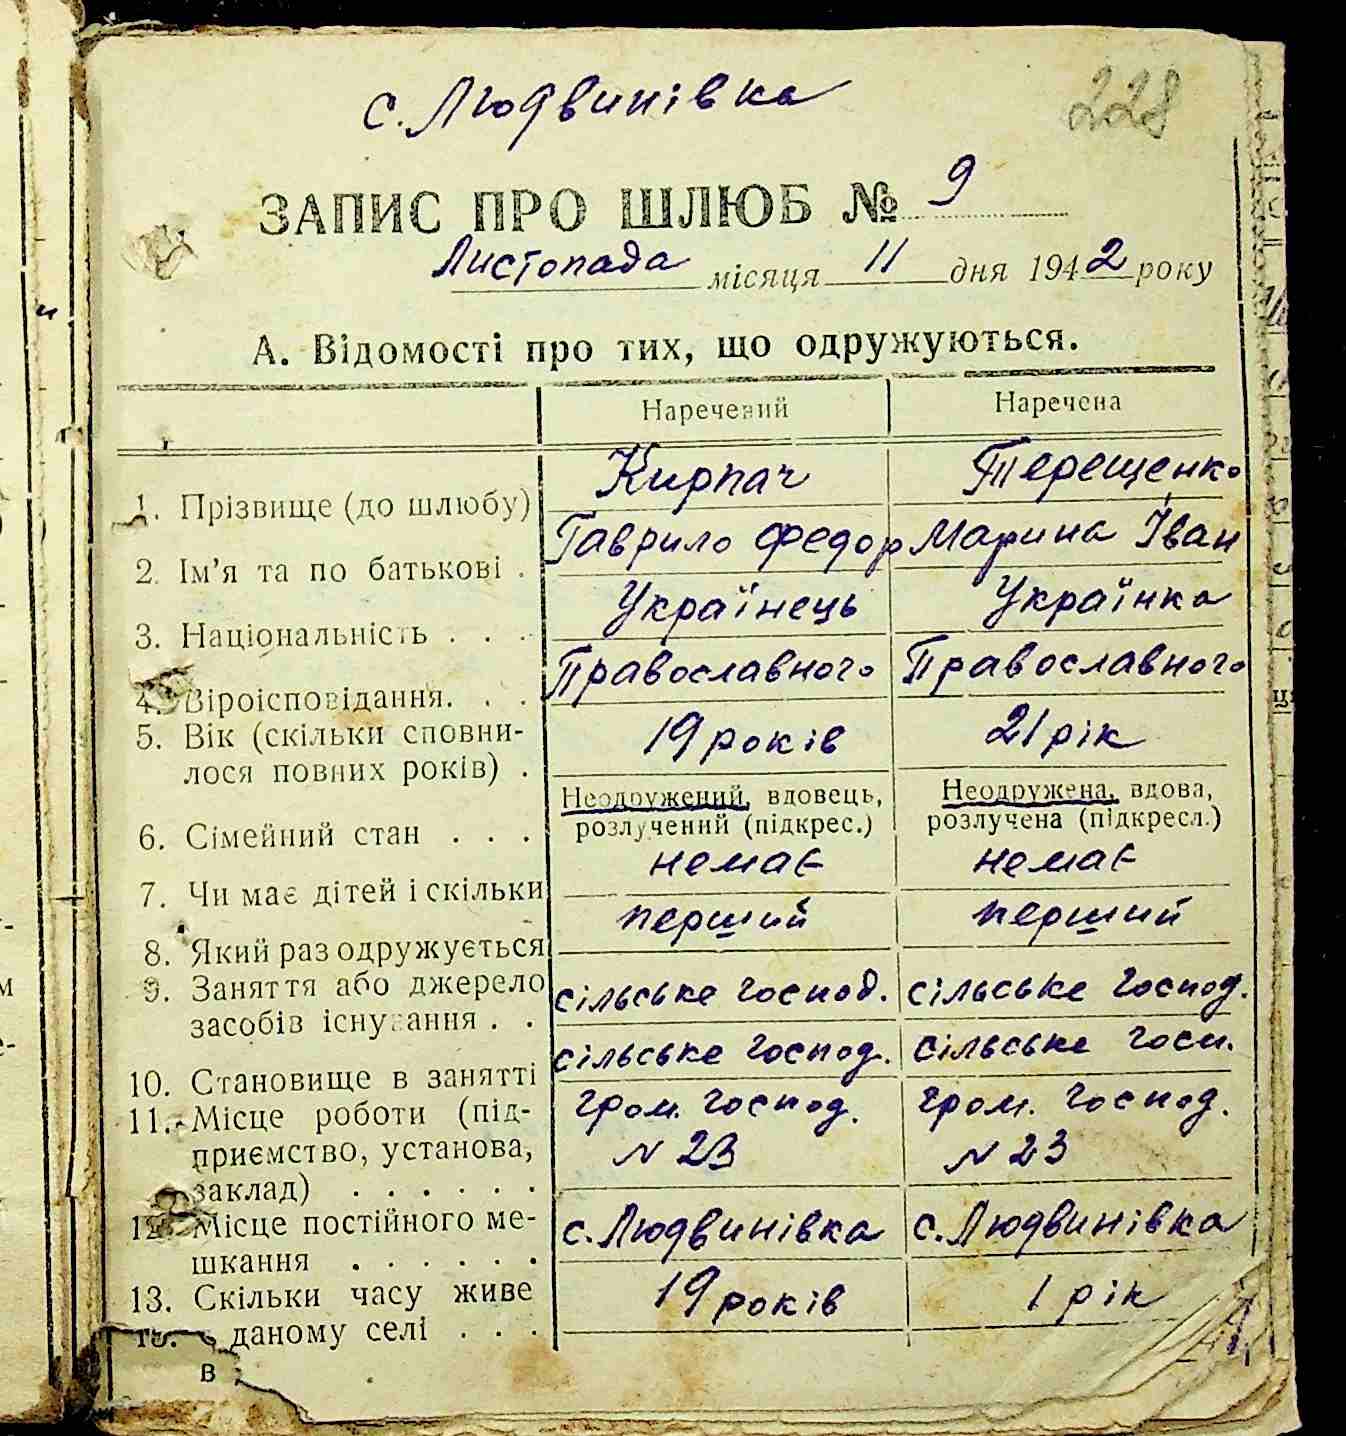 с. Людвинівка
228
ЗАПИС ПРО ШЛЮБ № 9
Листопада місяця 11 дня 1942 року
А. Відомості про тих, що одружуються.
Наречений Наречена
1. Прізвище (до шлюбу) Кирпач Терещенко
2. Ім'я та по батькові . Гаврило Федор Марина Іван
3. Національність . . . Українець Українка
4. Віроісповідання. . . Православного Православного
5. Вік (скільки сповни-
лося повних років) . 19 років 21 рік
Неодружений, вдовець, Неодружена, вдова,
6. Сімейний стан . . . розлучений (підкрес.) розлучена (підкресл.)
7. Чи має дітей і скільки немає немає
8. Який раз одружується перший перший
9. Заняття або джерело
засобів існування . . сільське господ. сільське господ.
10. Становище в занятті сільське господ. сільське госп.
11. Місце роботи (під- гром. господ. гром. господ.
приємство, установа, N 23 N 23
заклад) . . . . . .
12. Місце постійного ме- с. Людвинівка с. Людвинівка
шкання . . . . . .
13. Скільки часу живе 19 років 1 рік
даному селі . . .
в